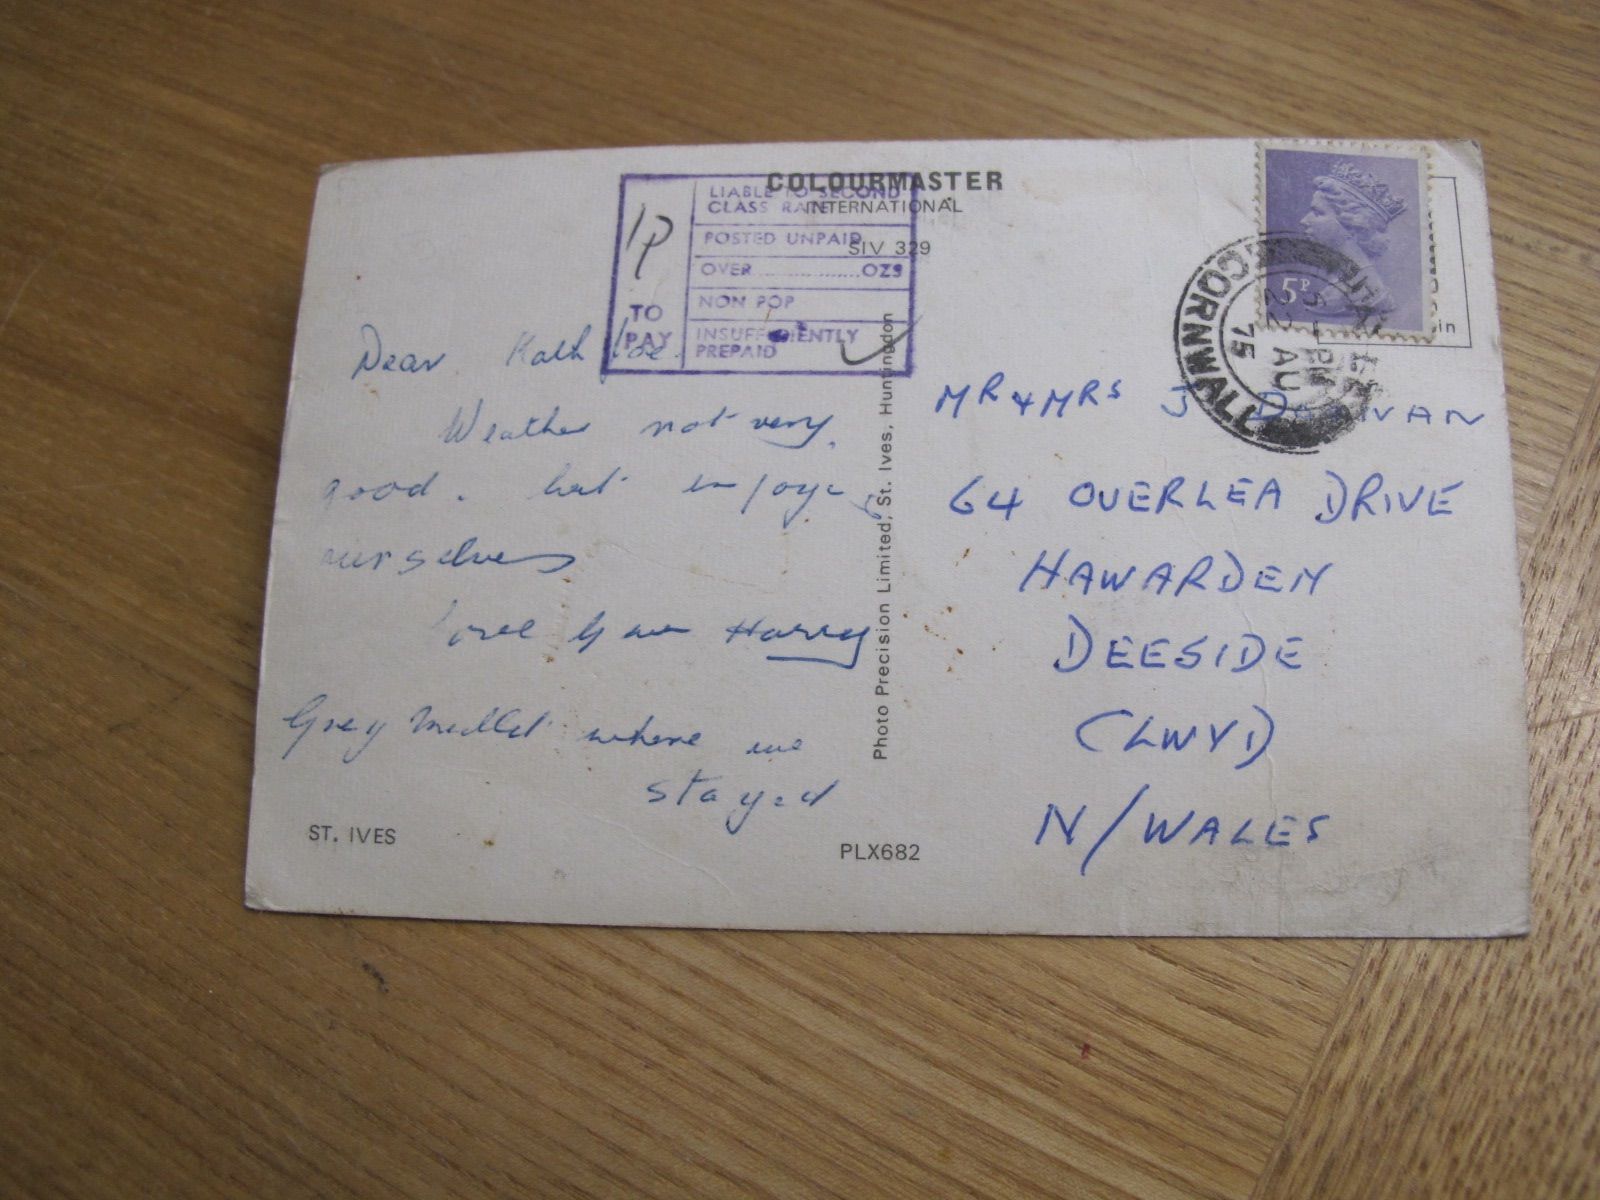 COLOURMASTER
INTERNATIONAL
SIV 329
1p
TO
PAY
LIABLE TO SECOND
CLASS RATE
POSTED UNPAID
OVER..................OZS
NON POP
INSUFFICIENTLY
PREPAID
5P
CORNWALL
22 AU
75
Dear Kath Joe.
Weather not very
good. but enjoy
ourselves
love Harry
Grey Mullet where we
stayed
ST. IVES
PLX682
Photo Precision Limited, St. Ives, Huntingdon
MR & MRS J
64 OVERLEA DRIVE
HAWARDEN
DEESIDE
CLWYD
N/WALES